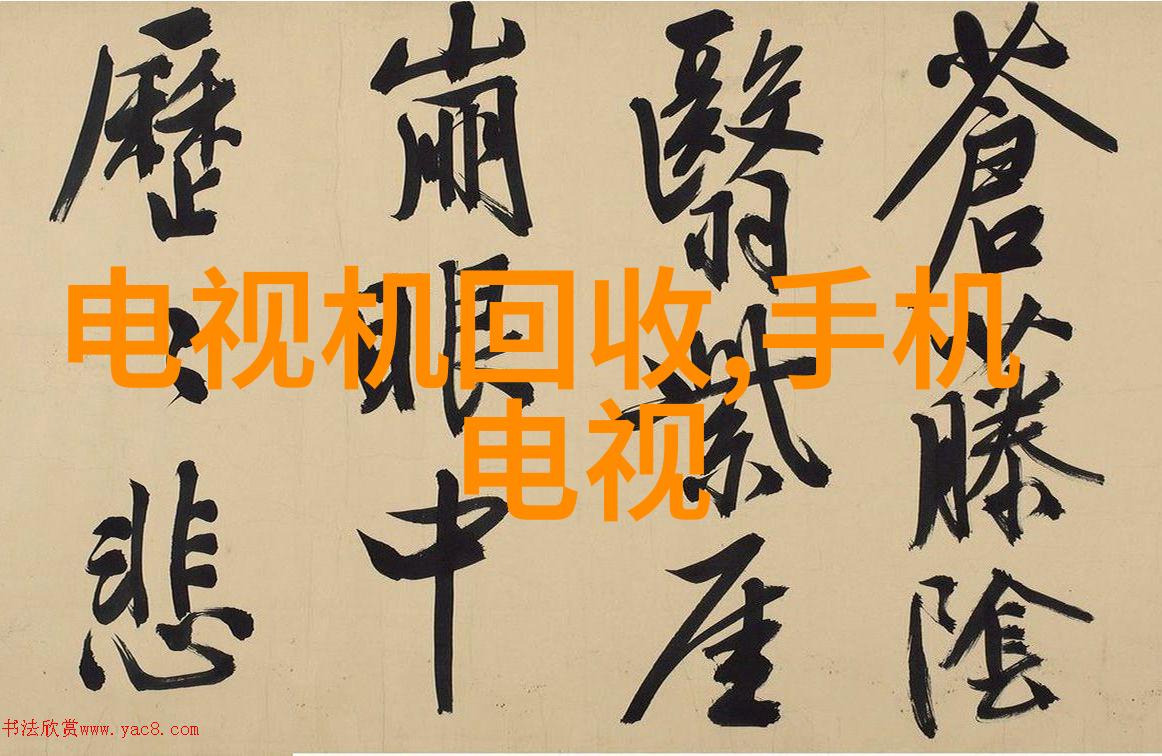 蒼藤陰
翳紫厓
崩眼中
歷悲
电视机回收,手机
电视
书法欣赏www.yac8.com